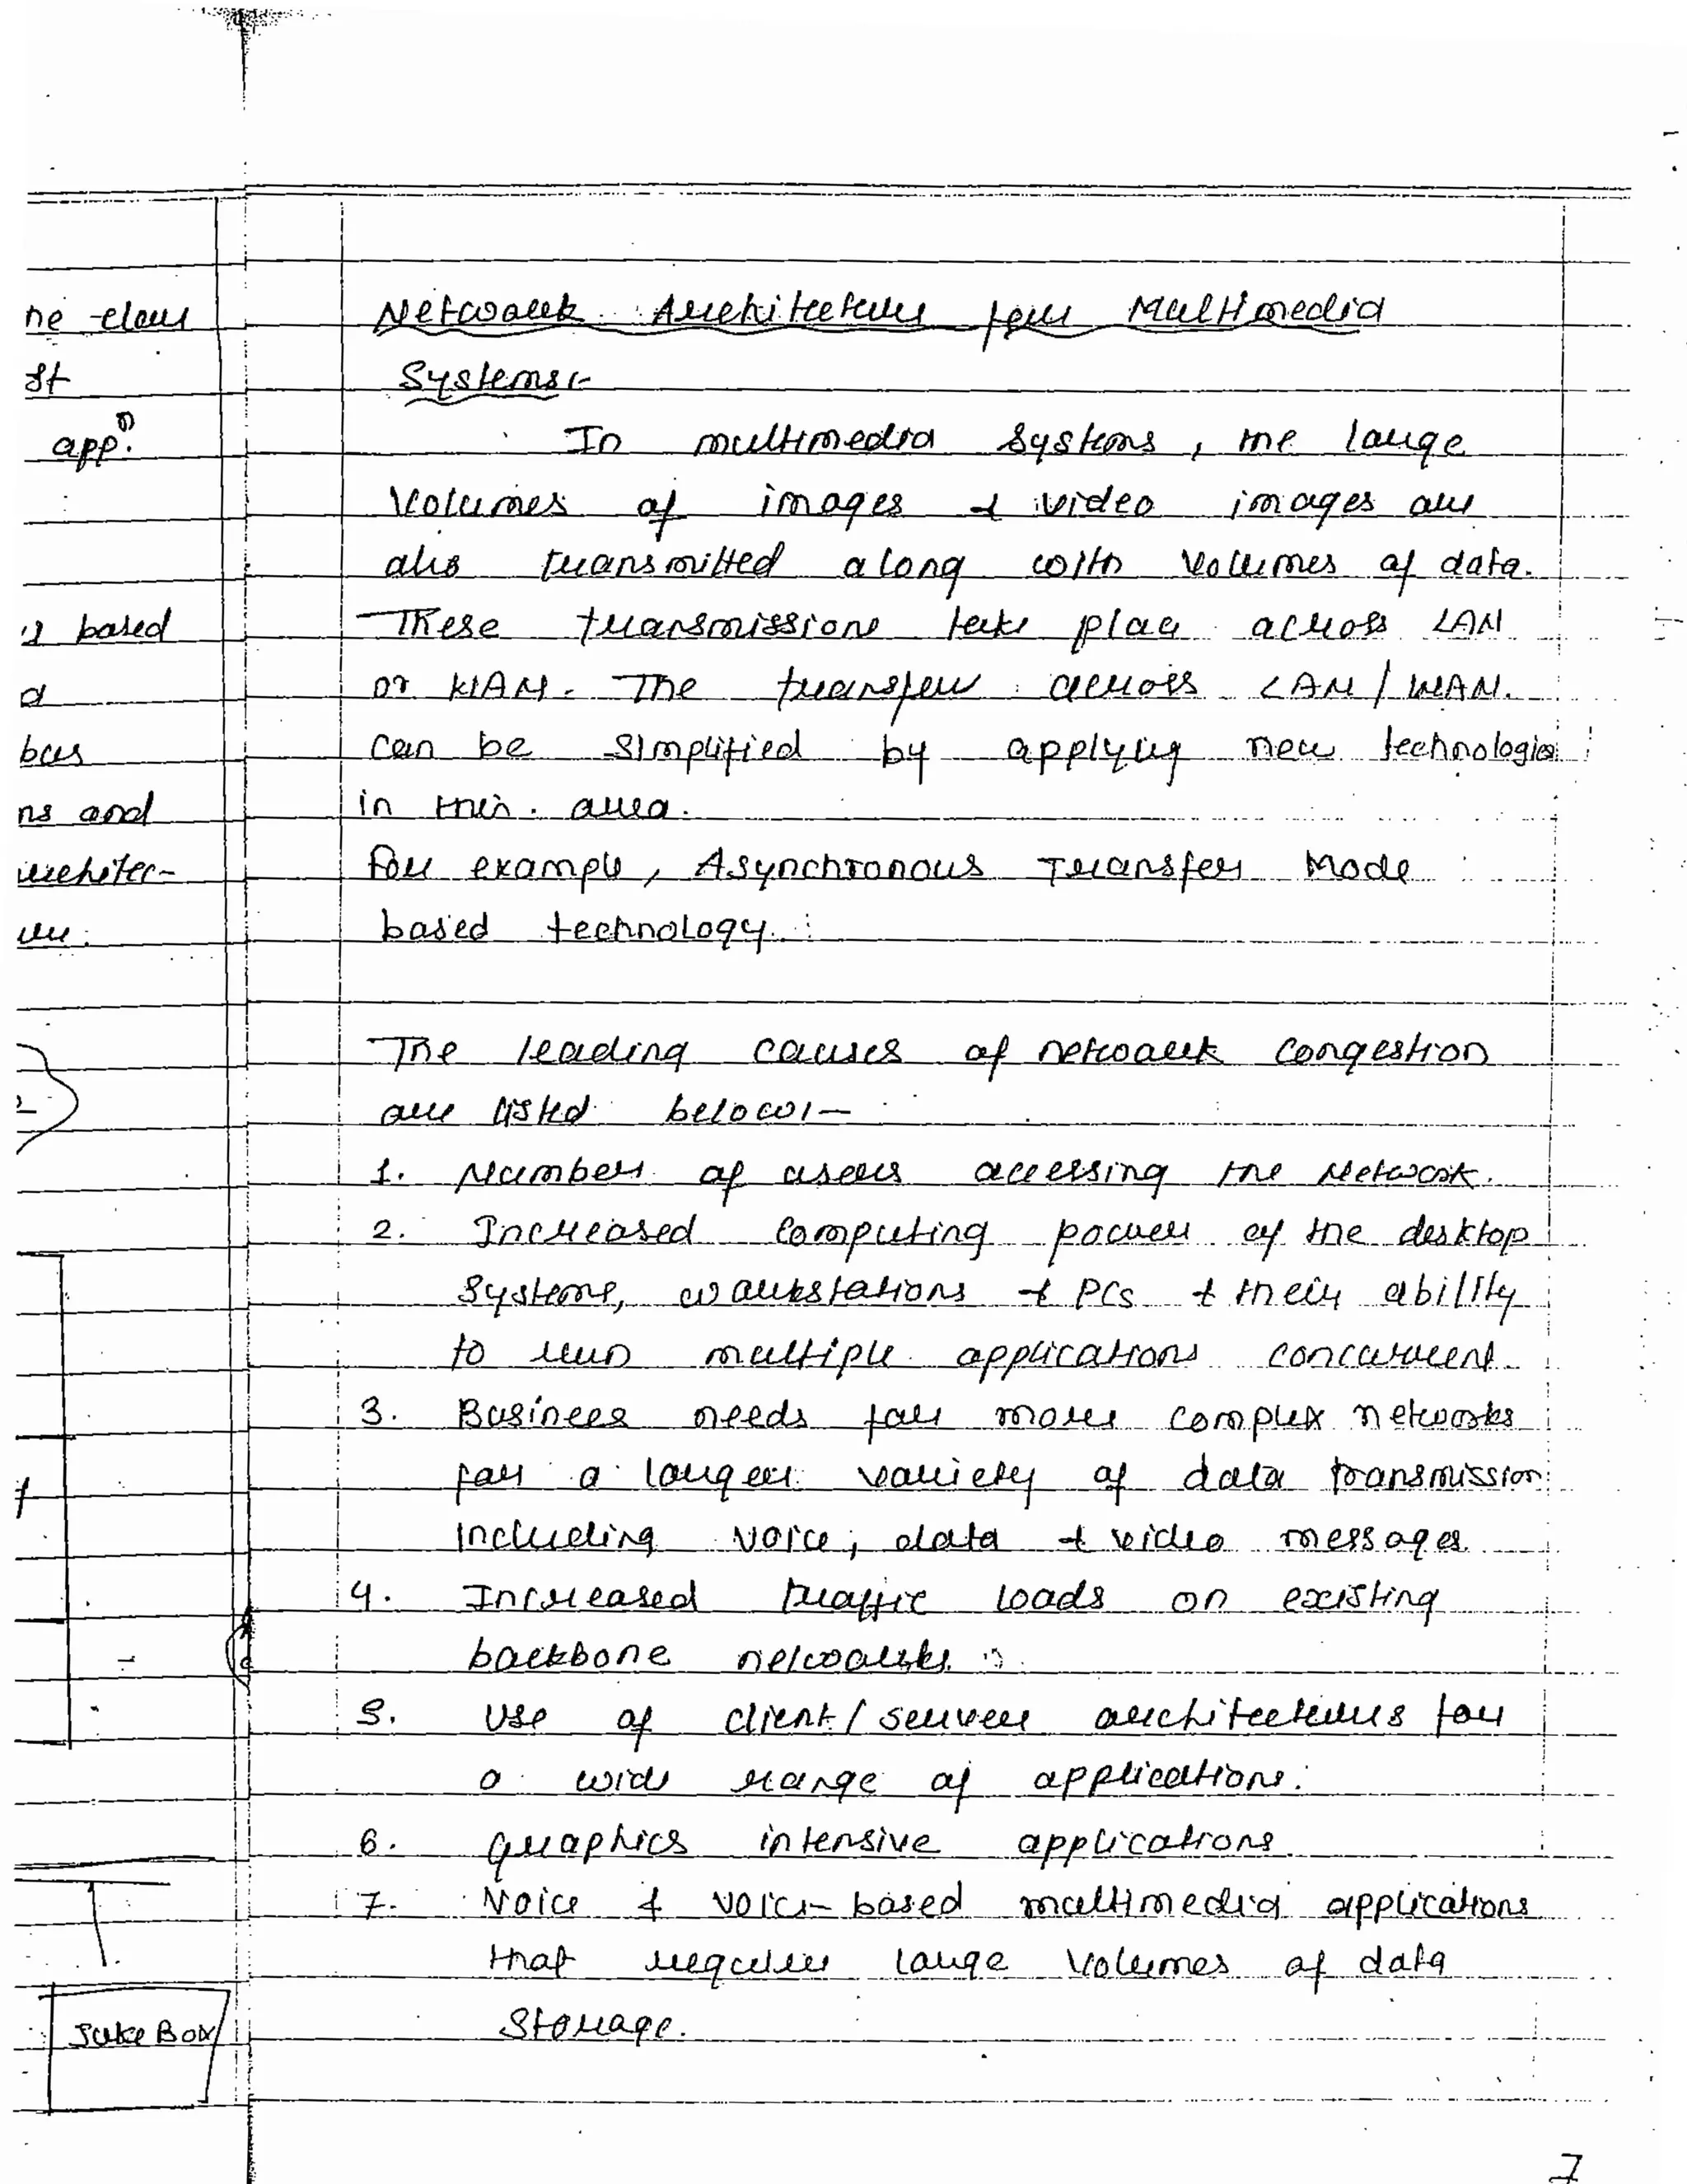 Network Architecture for Multimedia
Systems:-
In multimedia systems, the large
volumes of images & video images are
also transmitted along with volumes of data.
These transmissions take place across LAN
or WAN. The transfer across LAN/WAN.
can be simplified by applying new technologies
in this area.
For example, Asynchronous Transfer Mode
based technology.
The leading causes of network congestion
are listed below:-
1. Number of users accessing the Network.
2. Increased computing power of the desktop
systems, workstations & PCs & their ability
to run multiple applications concurrent
3. Business needs for more complex networks
for a larger variety of data transmission
including voice, data & video messages
4. Increased traffic loads on existing
backbone networks.
5. Use of client/server architectures for
a wide range of applications.
6. graphics intensive applications.
7. Voice & voice-based multimedia applications
that require large volumes of data
storage.
7
st
appn.
based
a
bus
ns and
Juke Box